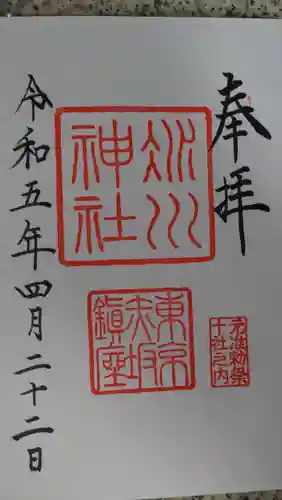 奉拝
氷川神社
東京赤坂鎮座
元准勅祭十社之内
令和五年四月二十二日